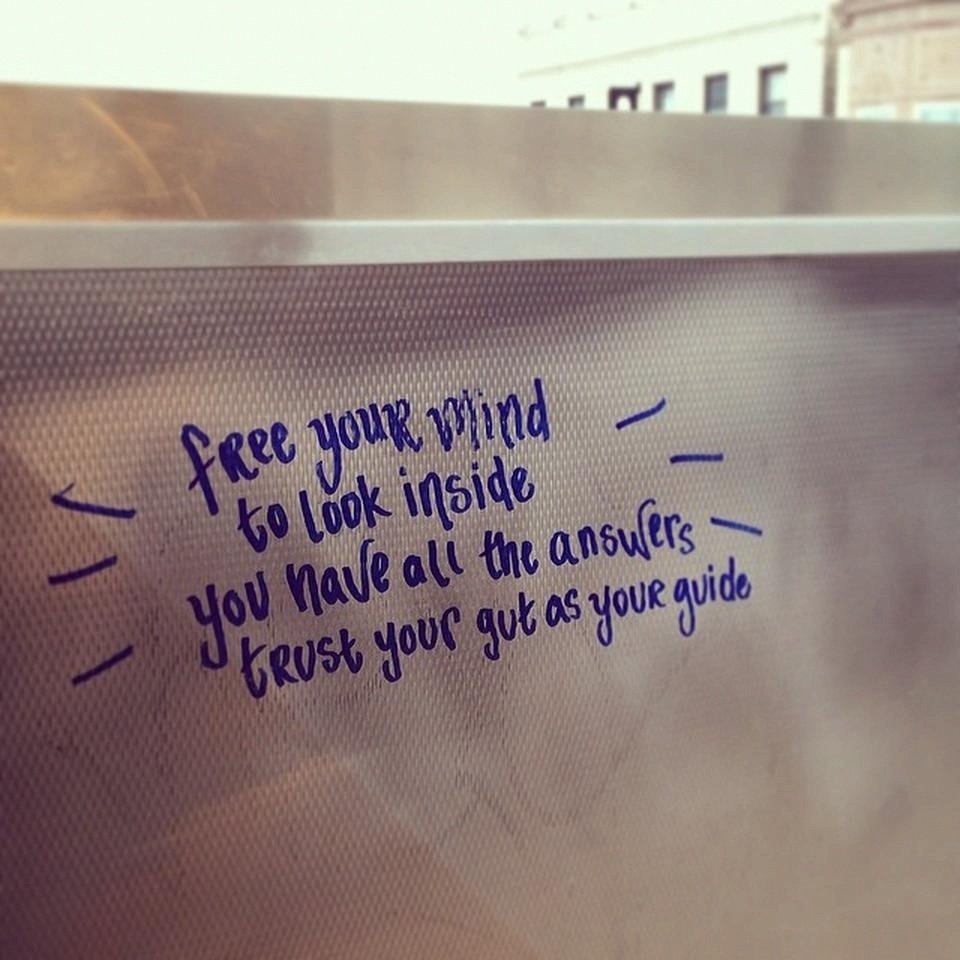 free your mind
to look inside
you have all the answers
trust your gut as your guide